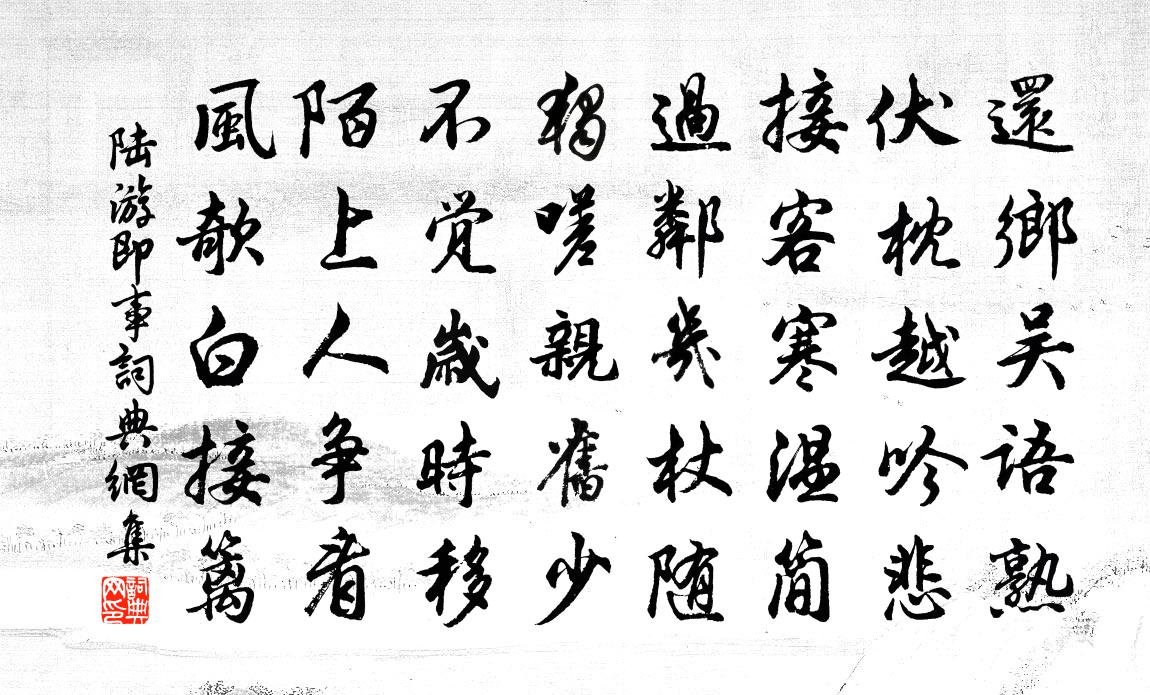 還鄉吴語熟
伏枕越吟悲
接客寒温簡
過鄰幾杖随
獨嗟親舊少
不覺歲時移
陌上人争看
風欹白接篱
陸游即事詞典網集
詞典网印